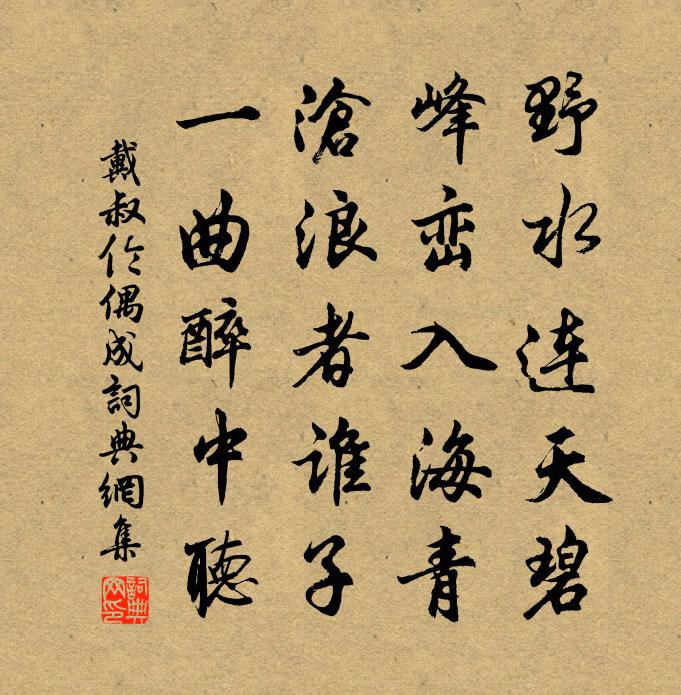 野水连天碧
峰峦入海青
滄浪者谁子
一曲醉中聽
戴叔伦偶成詞典網集
詞典网印